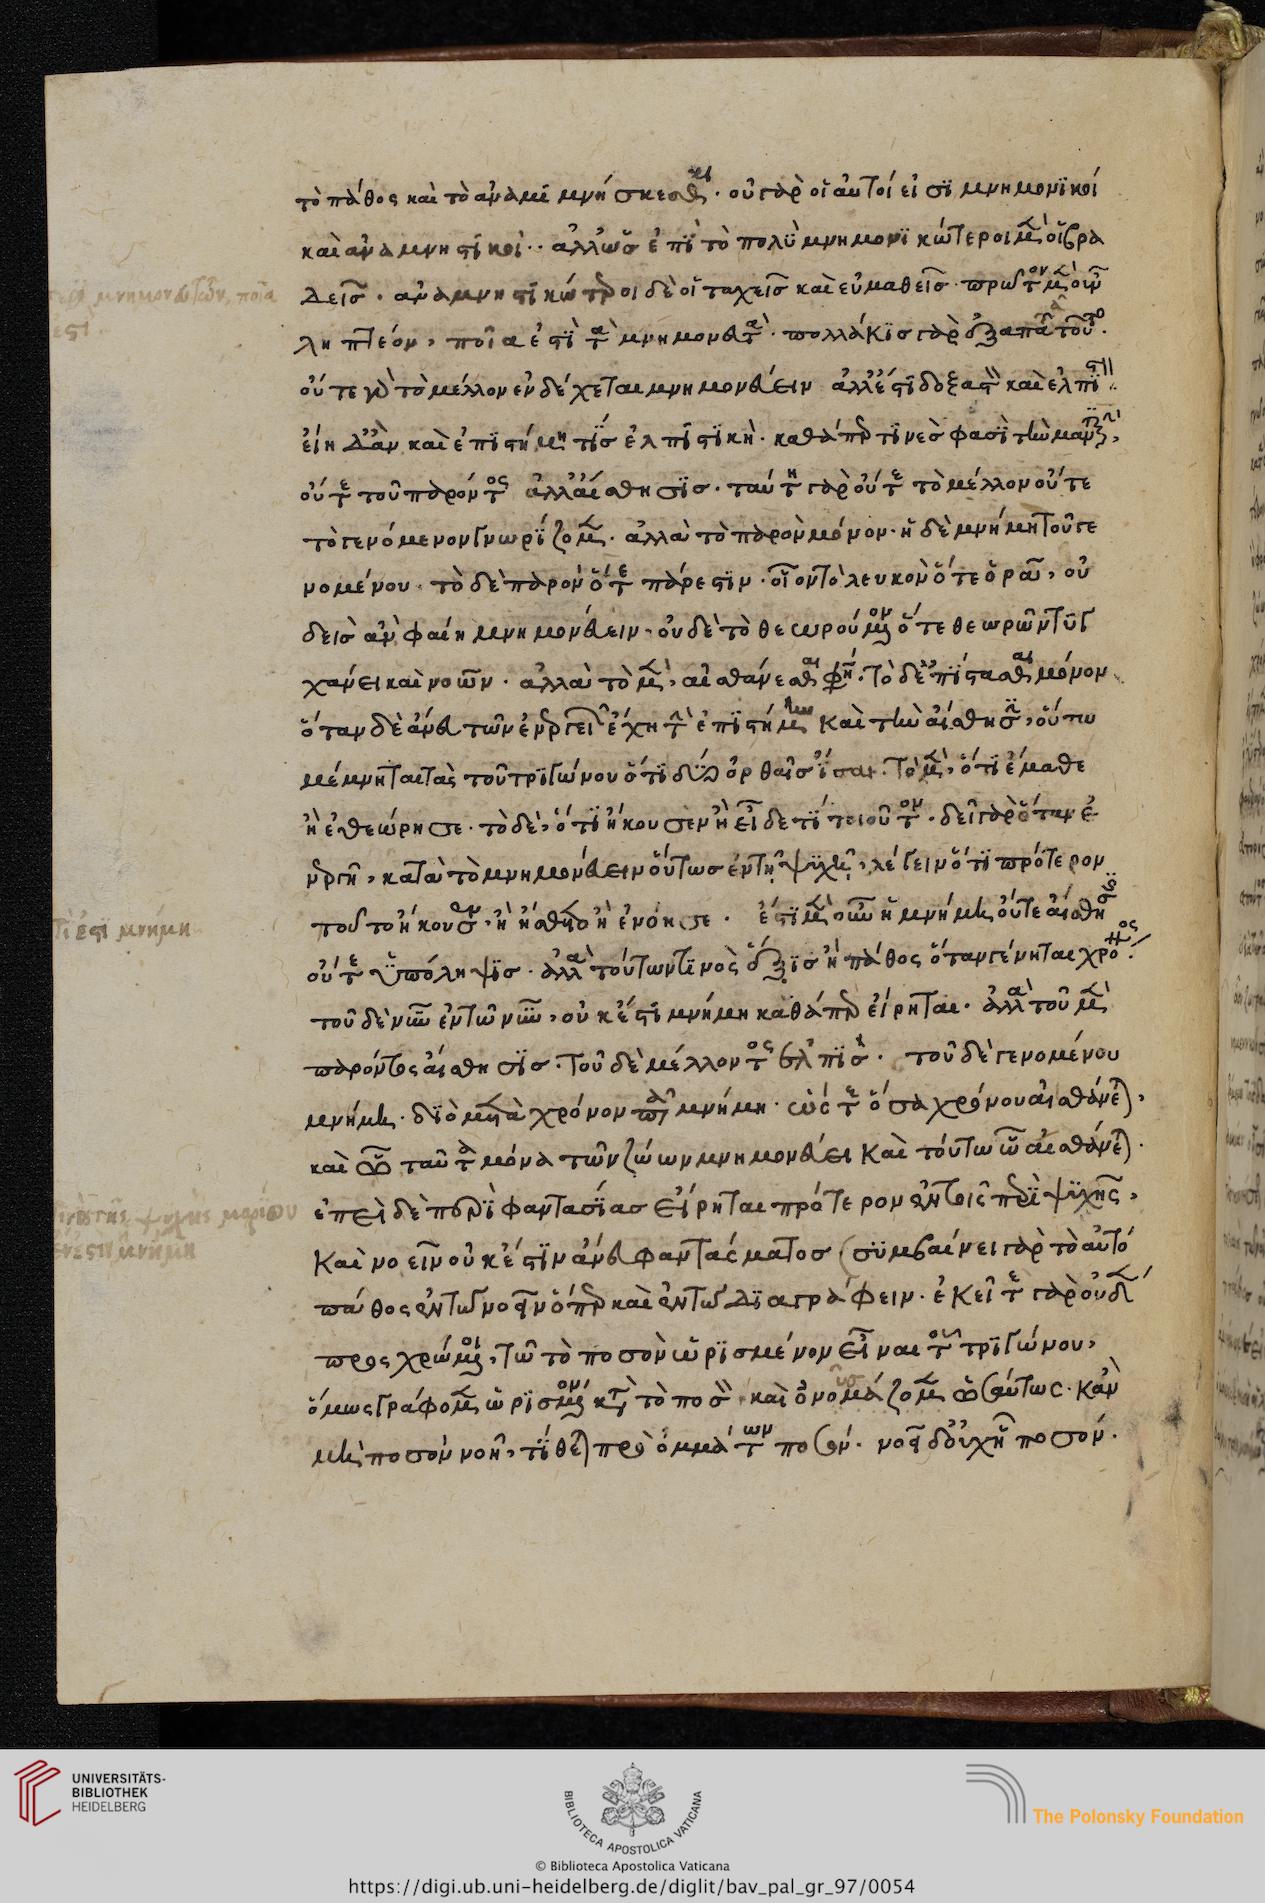 τὸ πάθος καὶ τὸ ἀναμιμνήσκεσθαι· οὐ γὰρ οἱ αὐτοί εἰσϊ μνημονϊκοί
καὶ ἀναμνηστϊκοί·· ἀλλ' ὡς ἐπῒ τὸ πολὺ μνημονϊκώτεροι μὲν οἱ βρα
δεῖς· ἀναμνηστϊκώτεροι δὲ οἱ ταχεῖς καὶ εὐμαθεῖς· πρῶτον μὲν οὖν
ληπτέον, ποῖα ἐστῒ τὰ μνημονευτὰ· πολλάκϊς γὰρ ἐξαπατᾶ τοῦτο·
οὔτε γὰρ τὸ μέλλον ἐνδέχεται μνημονεύειν ἀλλ' ἔστϊ δοξαστὸν καὶ ἐλπιστόν·
εἴη δ' ἂν καὶ ἐπϊστήμη τῒς ἐλπϊστϊκὴ· καθάπερ τϊνὲς φασῒ τὴν μαντικήν,
οὔτε τοῦ παρόντος ἀλλ' αἴσθησϊς· ταύτη γὰρ οὔτε τὸ μέλλον οὔτε
τὸ γενόμενον γνωρίζομεν· ἀλλὰ τὸ παρὸν μόνον· ἡ δὲ μνήμη τοῦ γε
νομένου· τὸ δὲ παρὸν ὅτε πάρεστϊν· οἷον τὸ λευκὸν ὅτε ὁρᾶ, οὐ
δεὶς ἂν φαίη μνημονεύειν· οὐδὲ τὸ θεωρούμενον ὅτε θεωρῶν τυγ
χάνει καὶ νοῶν· ἀλλὰ τὸ μὲν, αἰσθάνεσθαι φησὶ· τὸ δὲ ἐπίστασθαι μόνον
ὅταν δὲ ἄνευ τῶν ἐνεργειῶν ἔχη τὴν ἐπϊστήμην καὶ τὴν αἴσθησιν, οὕτω
μέμνηται τὰς τοῦ τρϊγώνου ὅτϊ δύο ὀρθαῖς ἴσαι· τὸ μὲν, ὅτϊ ἔμαθε
ἢ ἐθεώρησε· τὸ δὲ, ὅτϊ ἤκουσεν ἢ εἶδε τϊ τοιοῦτον· δεῖ γὰρ ὅταν ἐ
νεργῆ, κατὰ τὸ μνημονεύειν οὕτως ἐν τῆ ψϋχῆ, λέγειν ὅτϊ πρότερον
τοῦτο ἤκουσεν, ἢ ἤσθετο ἢ ἐνόησε· ἔστϊ μὲν οὖν ἡ μνήμη οὔτε αἴσθησις
οὔτε ὑπόληψϊς· ἀλλὰ τούτων τϊνὸς ἕξϊς ἢ πάθος ὅταν γένηται χρόνος·
τοῦ δὲ νῦν ἐν τῶ νῦν, οὐκ ἔστϊ μνήμη καθάπερ εἴρηται· ἀλλὰ τοῦ μὲν
παρόντος αἴσθησϊς· τοῦ δὲ μέλλοντος ἐλπϊς· τοῦ δὲ γενομένου
μνήμη· δϊὸ μετὰ χρόνου πᾶσα μνήμη· ὥστε ὅσα χρόνου αἰσθάνεται,
καὶ ταῦτα μόνα τῶν ζώων μνημονεύει καὶ τούτω ὧ αἰσθάνεται·
ἐπεὶ δὲ περῒ φαντασίας εἴρηται πρότερον ἐν τοῖς περῒ ψϋχῆς,
καὶ νοεῖν οὐκ ἔστϊν ἄνευ φαντάσματος (σϋμβαίνει γὰρ τὸ αὐτό
πάθος ἐν τῶ νοεῖν ὅπερ καὶ ἐν τῶ δϊαγράφειν· ἐκεῖ τε γὰρ οὐδὲν
προσχρώμενοι, τῶ τὸ ποσὸν ὡρϊσμένον εἶναι τοῦ τρϊγώνου,
ὅμως γράφομεν ὡρϊσμένον κατὰ τὸ ποσὸν· καὶ ὁ νο ζομεν ὡσαύτως· κἂν
μὴ ποσὸν νοῆ, τίθεται πρὸ ὀμμάτων ποσόν· νοεῖ δ' οὐχ ἧ ποσόν·
Τί ἐστι μνήμη
UNIVERSITÄTS-
BIBLIOTHEK
HEIDELBERG
BIBLIOTECA APOSTOLICA VATICANA
The Polonsky Foundation
© Biblioteca Apostolica Vaticana
https://digi.ub.uni-heidelberg.de/diglit/bav_pal_gr_97/0054